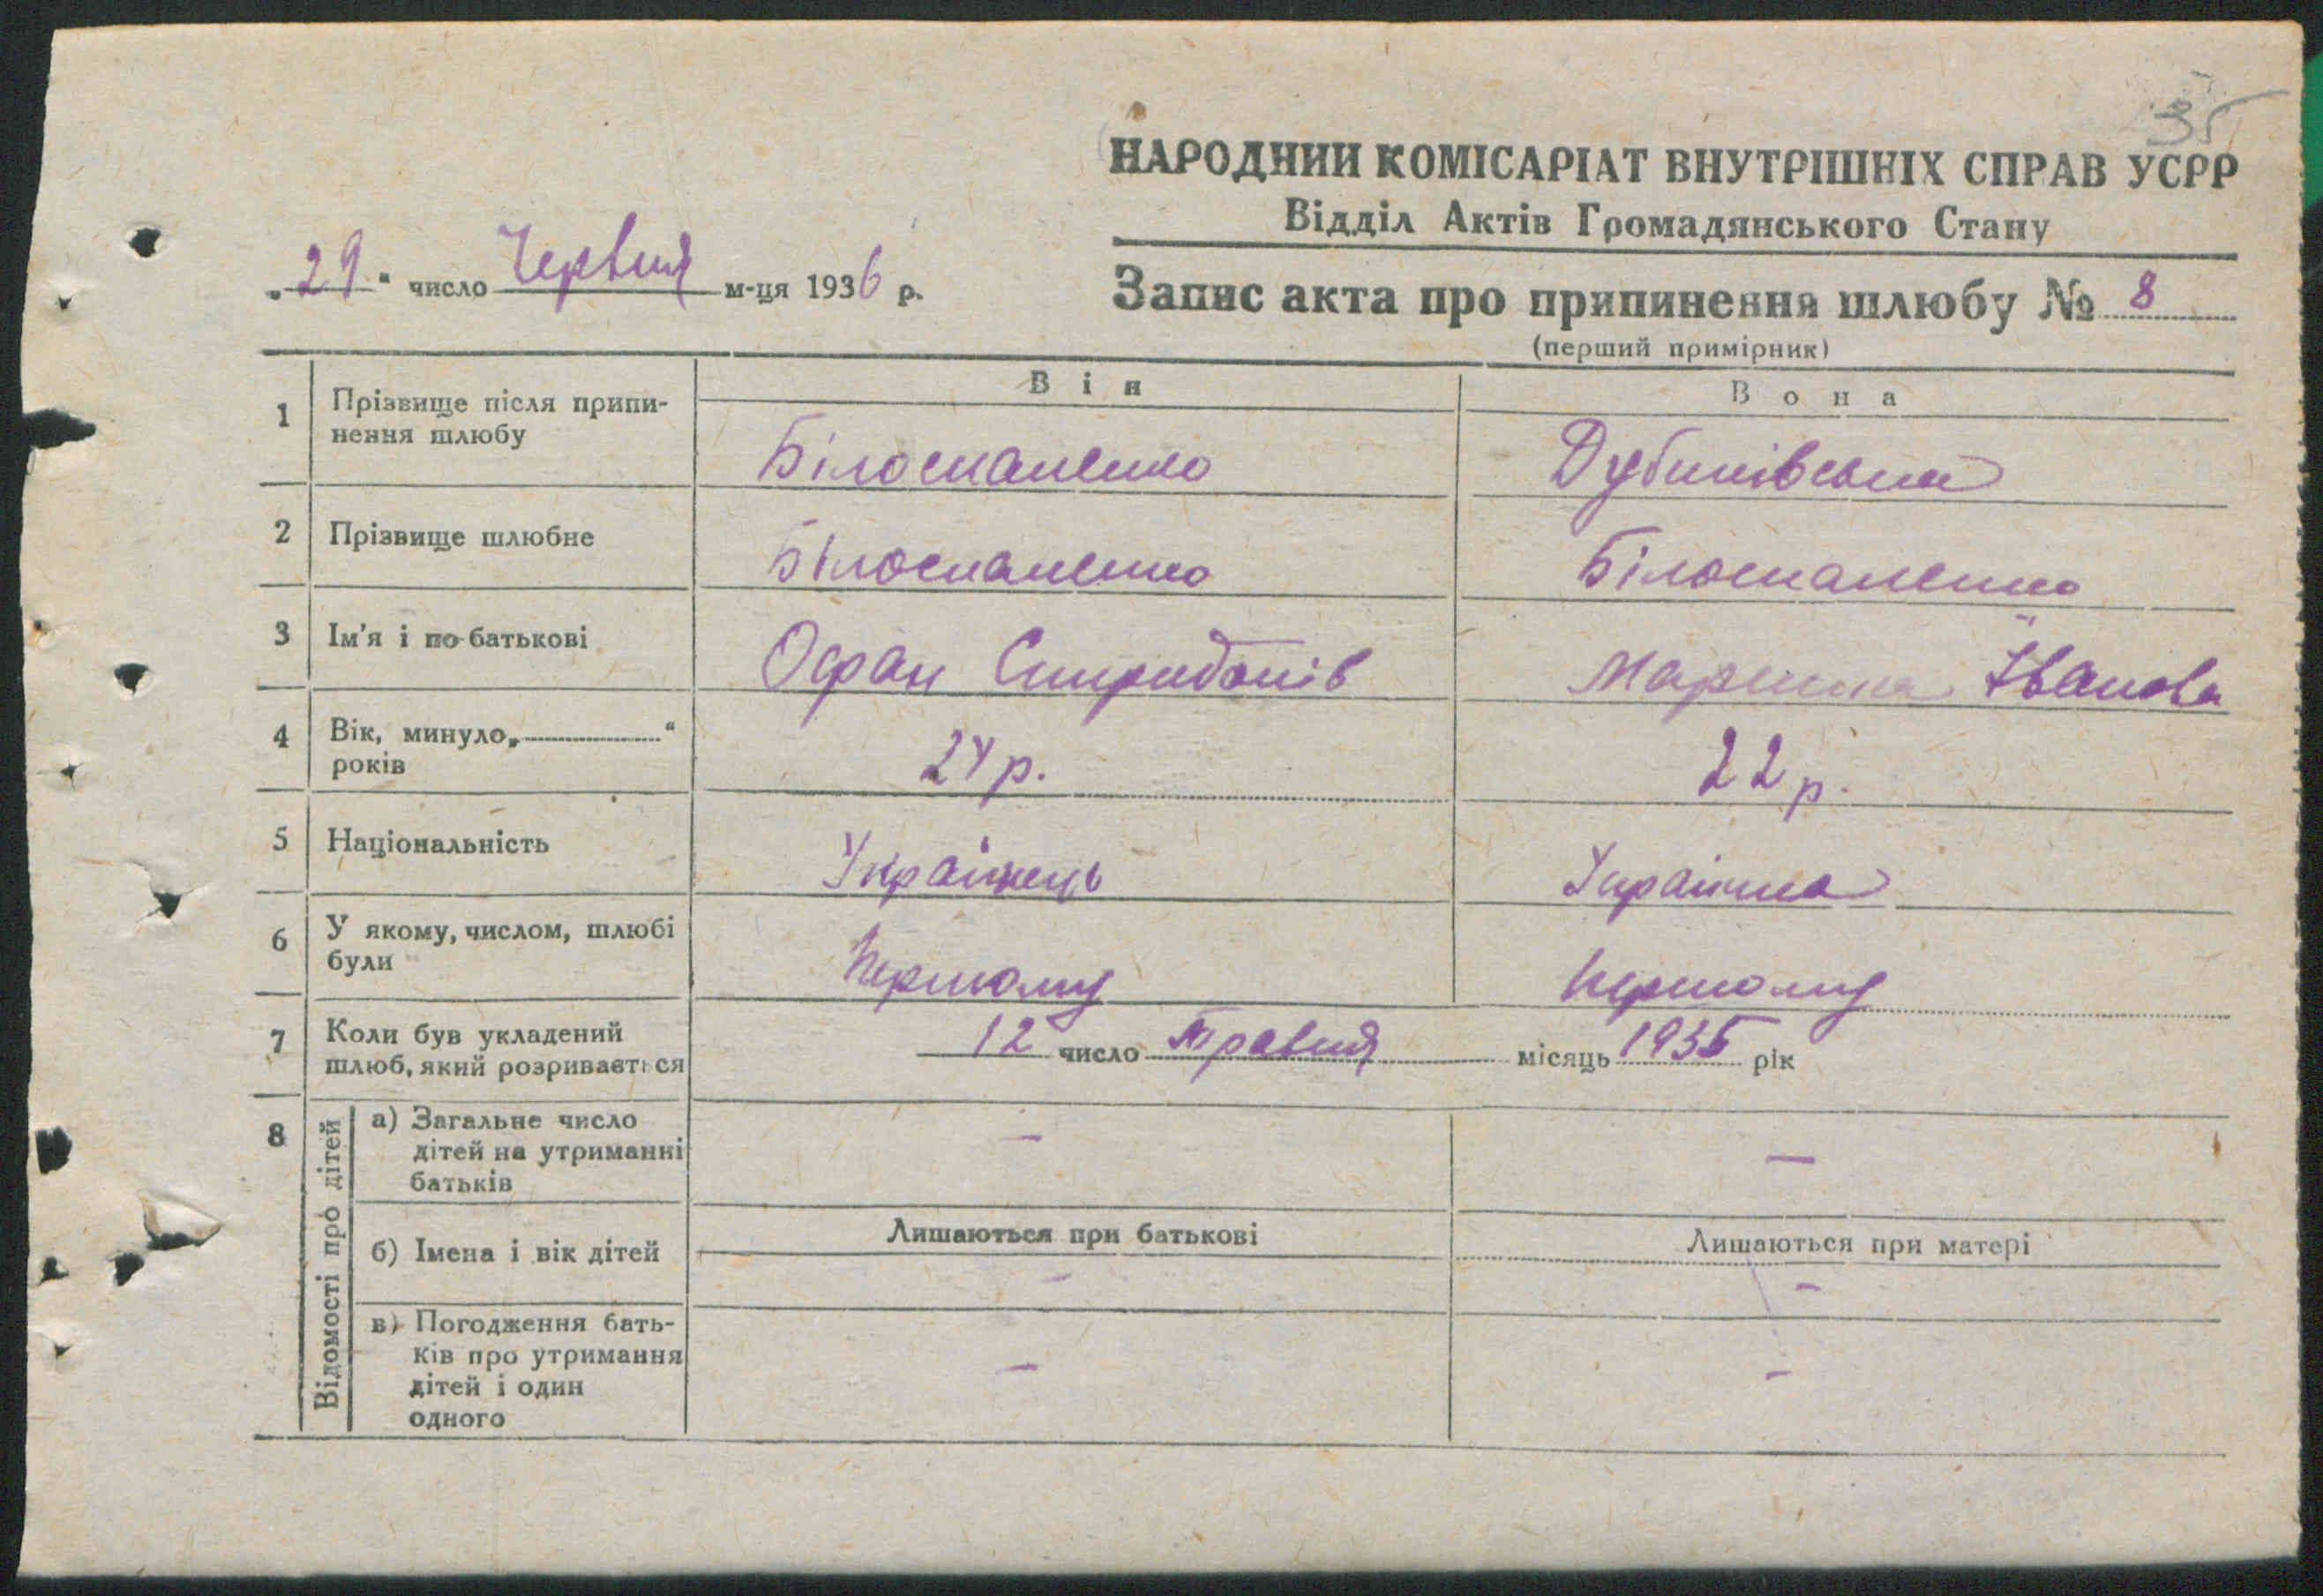 35
НАРОДНИЙ КОМІСАРІАТ ВНУТРІШНІХ СПРАВ УСРР
Відділ Актів Громадянського Стану
„29“ число Червня м-ця 1936 р.
Запис акта про припинення шлюбу № 8
(перший примірник)
Він
Вона
1 Прізвище після припи-
нення шлюбу
2 Прізвище шлюбне
3 Ім'я і по-батькові
Спиридонів
Іванова
4 Вік, минуло „ “
років
24 р.
22 р.
5 Національність
Українець
Українка
6 У якому, числом, шлюбі
були
Першому
Першому
7 Коли був укладений
шлюб, який розривається
12 число Травня місяць 1935 рік
8 Відомості про дітей
а) Загальне число
дітей на утриманні
батьків
–
–
б) Імена і вік дітей
Лишаються при батькові
Лишаються при матері
–
–
в) Погодження бать-
ків про утримання
дітей і один
одного
–
–